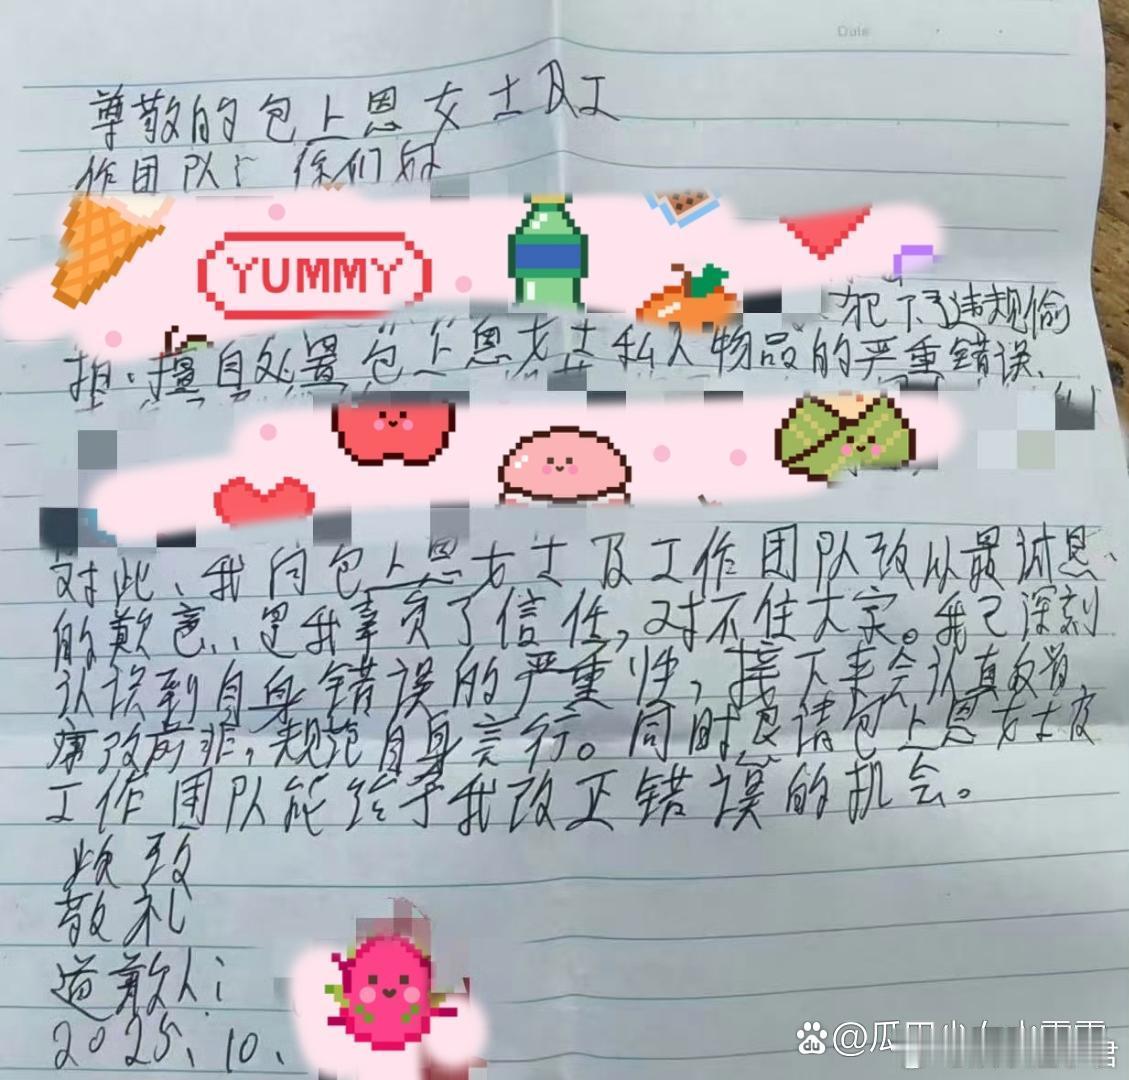 Date
尊敬的包上恩女士及工
作团队：你们好
YUMMY
犯下了违规偷
拍、擅自处置包上恩女士私人物品的严重错误、
对此、我向包上恩女士及工作团队致以最诚恳、
的歉意、是我辜负了信任，对不住大家。我已深刻
认识到自身错误的严重性，接下来会认真改省
痛改前非，规范自身言行。同时恳请包上恩女士及
工作团队能给予我改正错误的机会。
顺致
敬礼
道歉人：
2025、10、
du@瓜田小